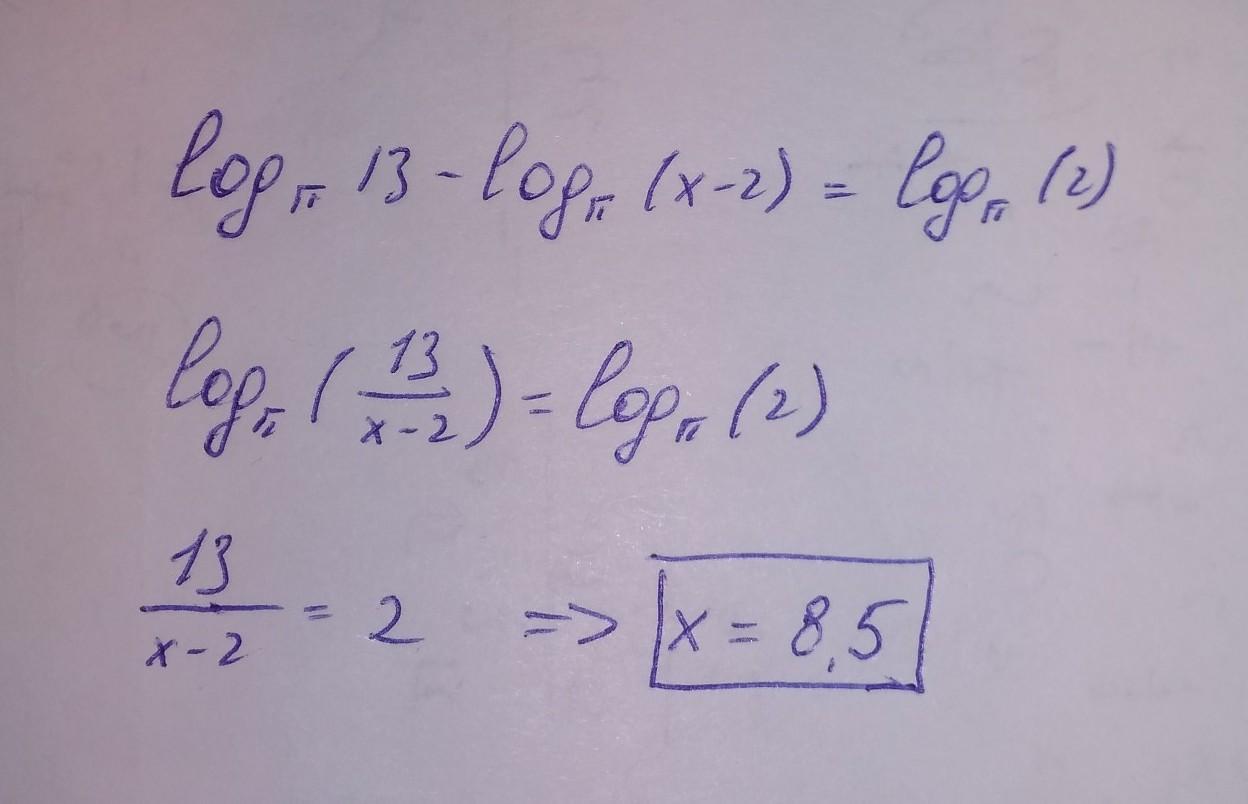 log_π 13 - log_π (x-2) = log_π (2)
log_π (13/(x-2)) = log_π (2)
13/(x-2) = 2 => x = 8,5